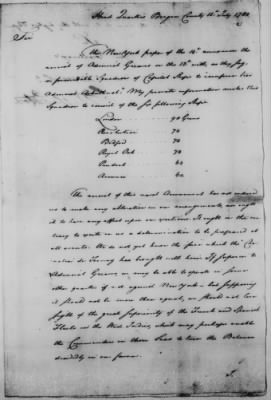 Head Quarters Bergen County 18th July 1780
Sir
The New York paper of the 14th announces the
arrival of Admiral Graves on the 13th with as they say
a formidable Squadron of Capital Ships to reinforce
Admiral Arbuthnot. My private information makes this
Squadron to consist of the following Ships
London 90 Guns
Resolution 74
Bedford 74
Royal Oak 74
Prudent 64
America 64
The arrival of this naval Armament has not induced
us to make any alteration in our arrangements, nor ought
it to have any effect upon our exertions. It ought on the
contrary to excite in us a determination to be prepared at
all events. We do not yet know the force which the
Chevalier de Ternay has brought with him. If superior to
Admiral Graves he may be able to operate in some
other quarter if not against New York - but supposing
it should not be more than equal, we should not lose
sight of the great superiority of the French and Spanish
Fleets in the West Indies, which may perhaps enable
the Commanders in those Seas to turn the Balance
decidedly in our favor.